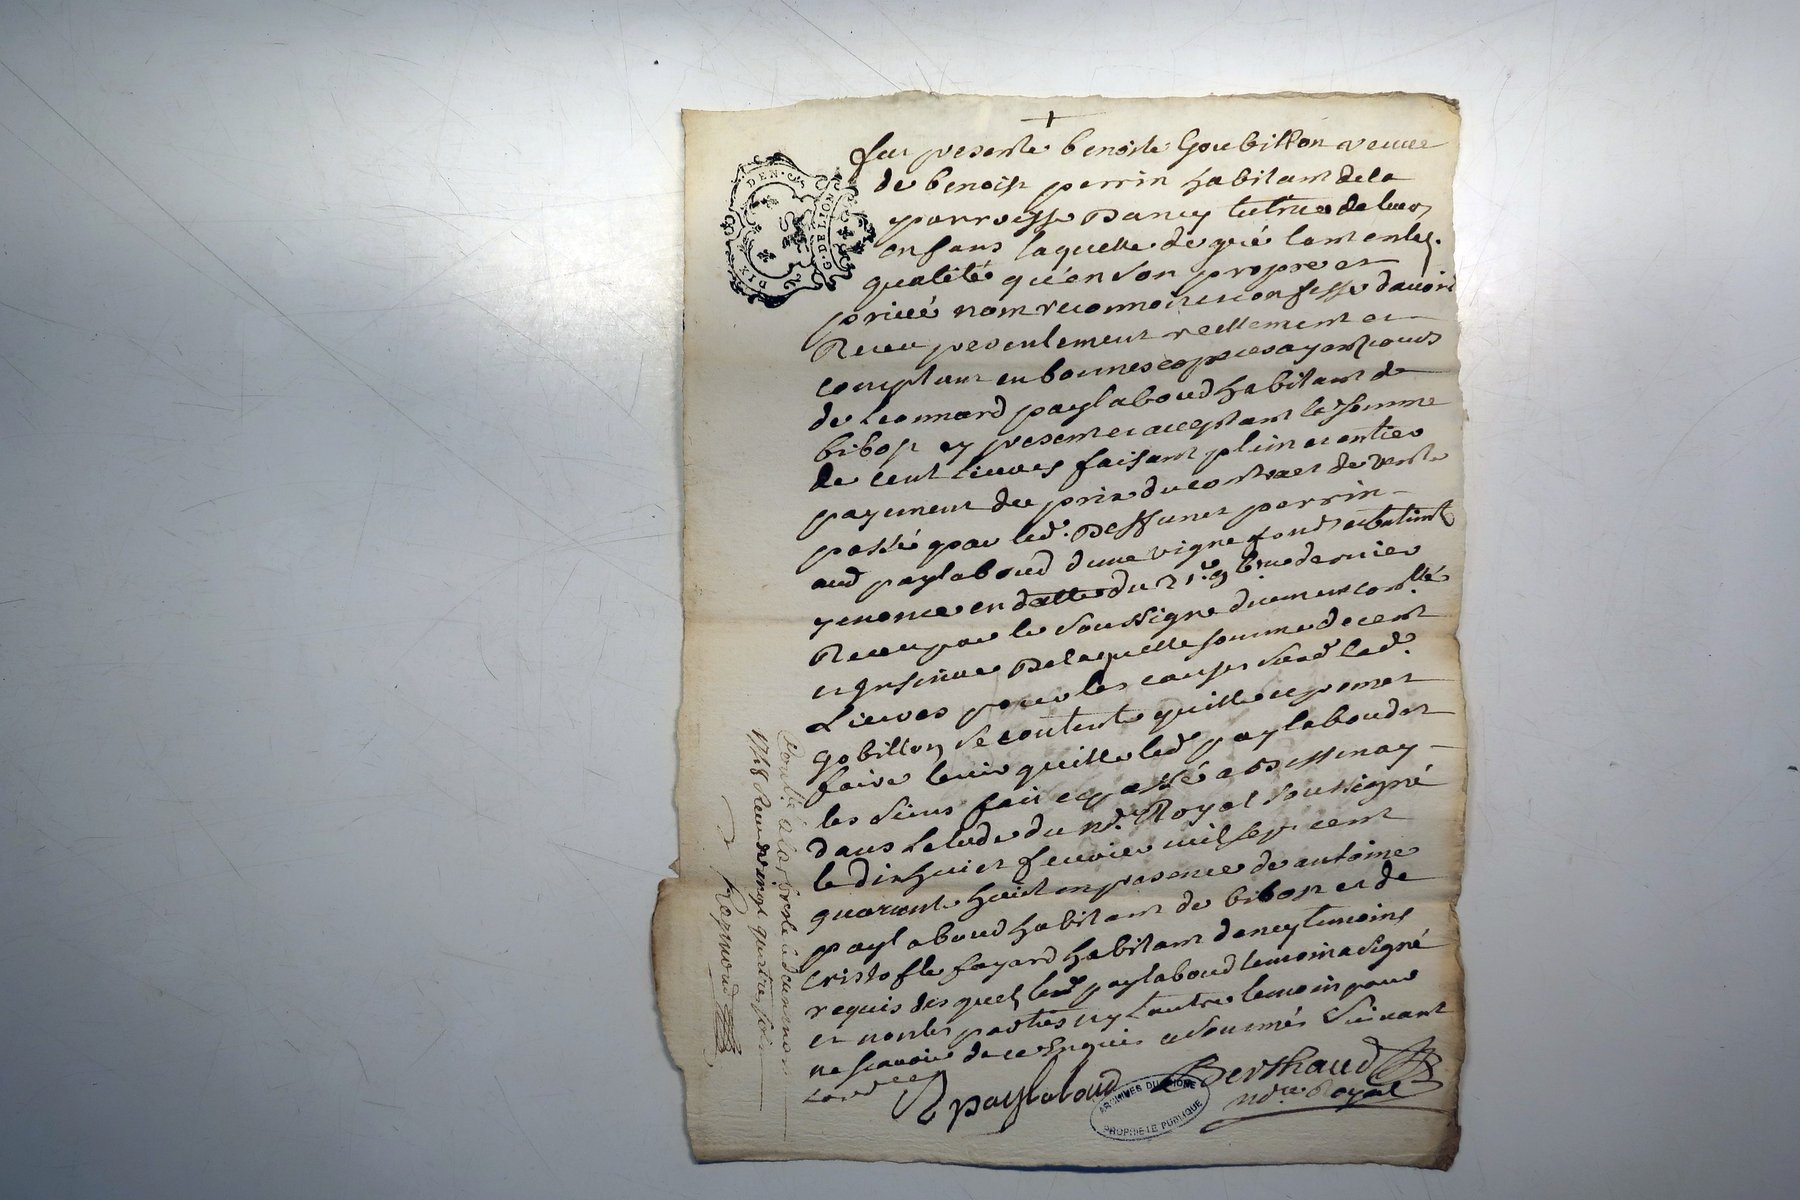 fut presente benoite Goubillon veuve
de benoist perrin habitant de la
parroisse Dancy tutrice de leurs
enfans laquelle de gré tant en lad.
qualité qu'en son propre et
privé nom reconnoit et confesse d'avoir
Receu presentement reellement et
comptant en bonnes especes ayant cours
de Leonnard paylaboud habitant de
bibost cy present et acceptant la somme
de cent Livres faisant plein et entier
payement du prix du contract de vente
passé par led. Deffunct perrin
aud paylaboud d'une vigne fond
y enoncé en datte du 21e 9bre dernier
Receu par le soussigné duement con.llé
et Insinué De laquelle somme de cent
Livres pour les causes susd lad.
gobillon se contente quitte et promet
faire tenir quitte led paylaboud et
les siens fait et passé a Bessenay
dans Letude du no.re Royal soussigné
le dixhuict fevrier mil sept cent
quarante huict en presence de antoine
paylaboud habitant de bibost et de
cristofle fayard habitant dancy temoins
requis desquels led paylaboud temoin a signé
et non les parties ny l'autre temoin pour
ne scavoir de ce Enquis et sommés suivant
Lord.ce
paylaboud Berthaud
no.re Royal
DIX DEN.
G. DE LION
ARCHIVES DU RHONE
PROPRIÉTÉ PUBLIQUE
Conllé a Larbresle le
1748 Receu vingt quatre sols